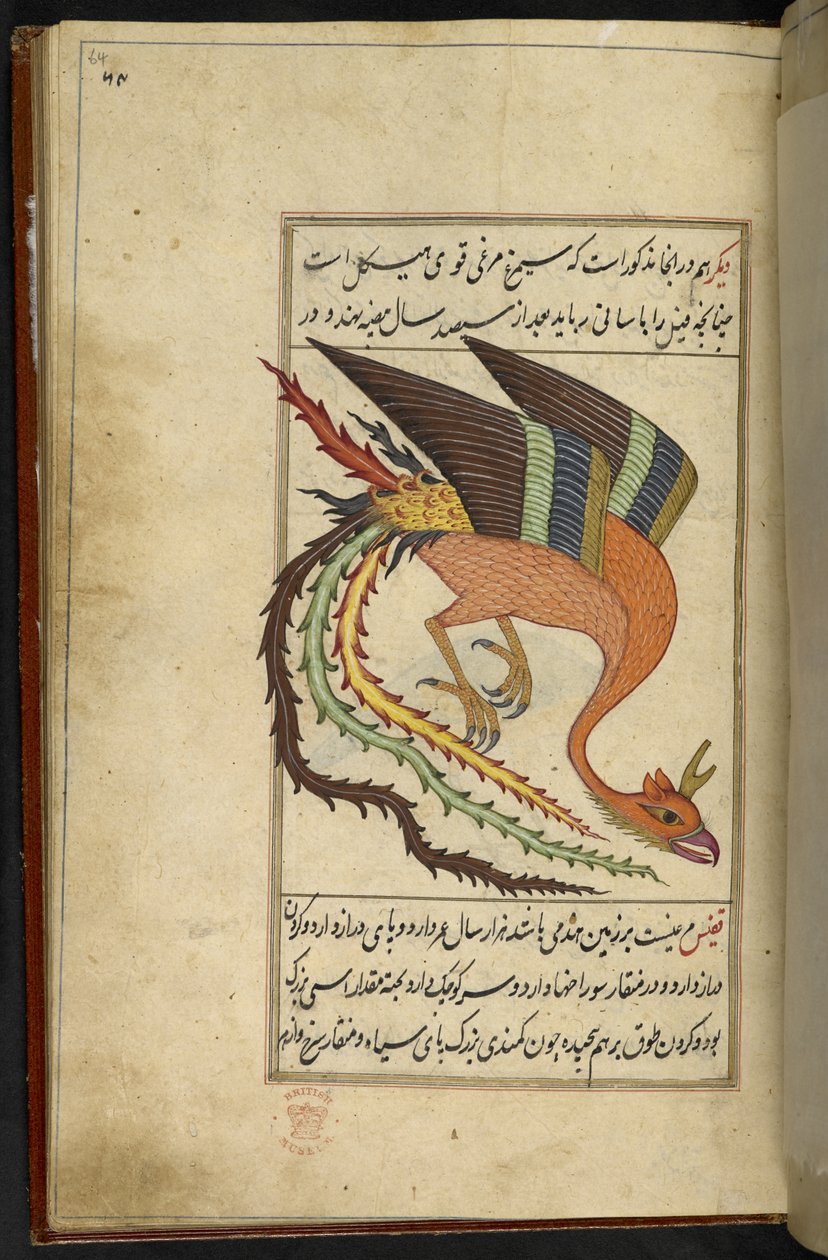 64
دیکر هم در انجا مذکور است که سیمرغ مرغی قوی هیکل است
چنانچه فیل را باسانی رباید بعد از سیصد سال بیضه نهد و در
قفنس مرغیست بر زمین هند می باشد هزار سال عمر دارد و پای دراز دارد و کردن
دراز دارد و در منقار سوراخها دارد و سر کوچک دارد بجثه مقدار اسپی بزرک
بود و کردن طوق بر هم پیچیده چون کمندی بزرک پای سیاه و منقار سرخ و از هر
BRITISH
MUSEUM